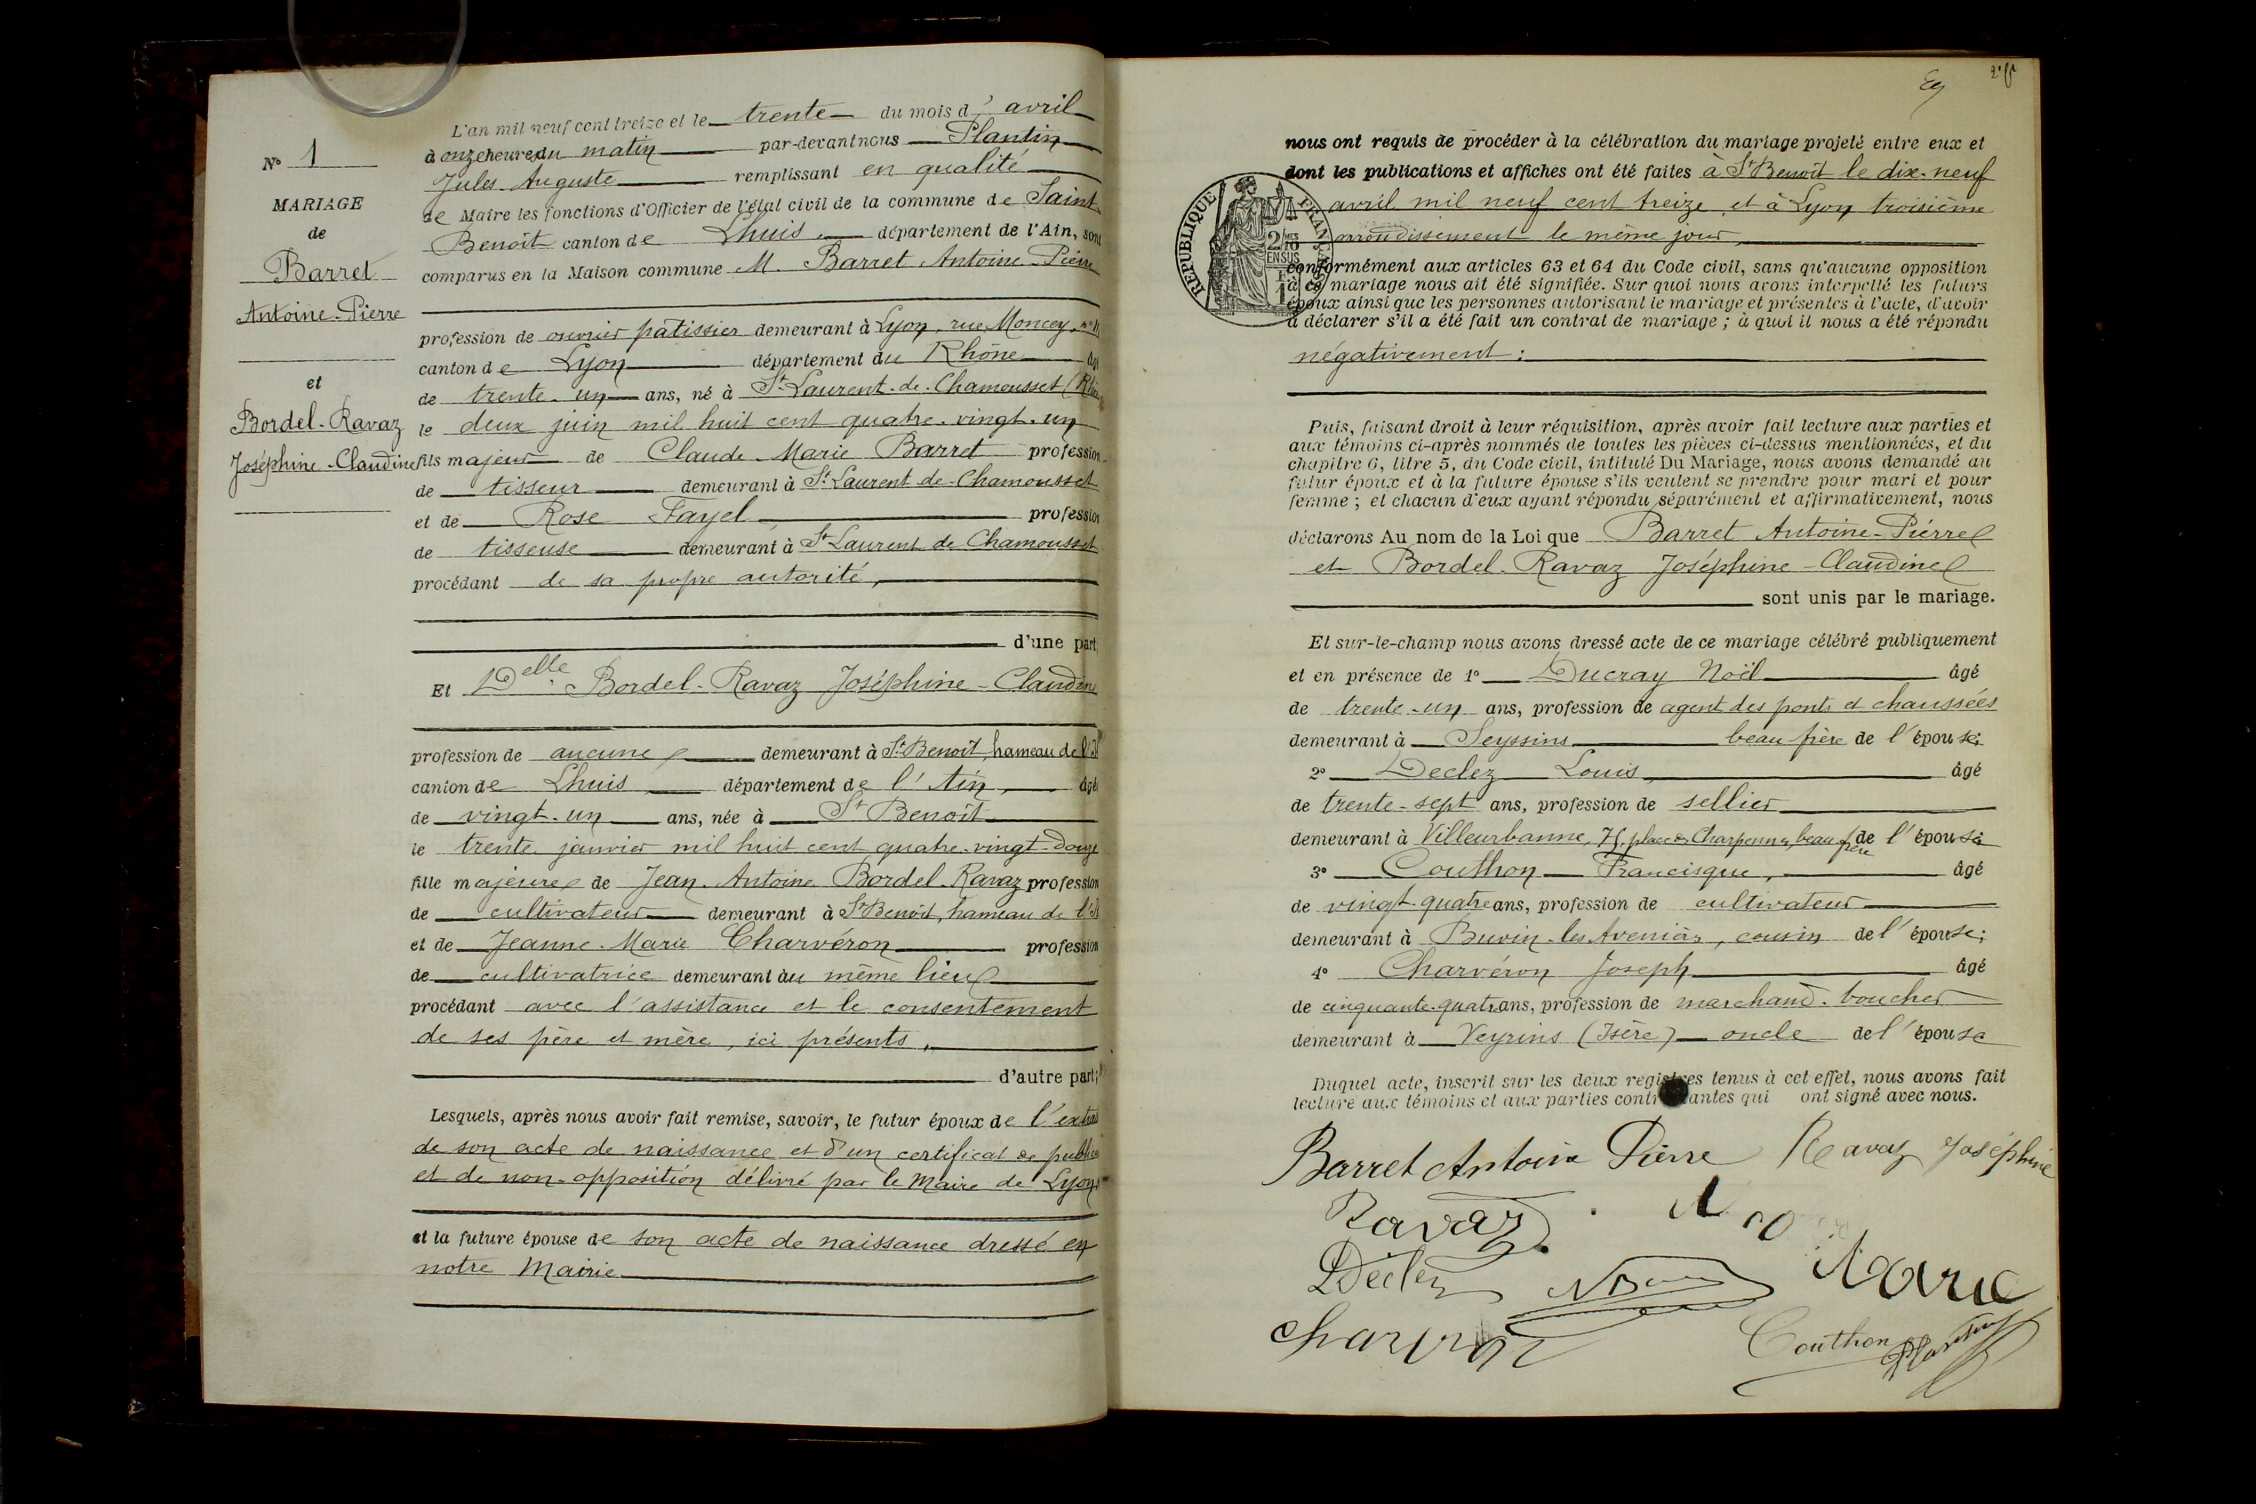 N° 1
MARIAGE
de
Barret
Antoine-Pierre
et
Bordel-Ravaz
Joséphine-Claudine
L'an mil neuf cent treize et le trente du mois d'avril
à onze heures du matin par-devant nous Plantin
Jules Auguste remplissant en qualité
de Maire les fonctions d'Officier de l'état civil de la commune de Saint
Benoît canton de Lhuis département de l'Ain, sont
comparus en la Maison commune M. Barret Antoine-Pierre
profession de ouvrier pâtissier demeurant à Lyon, rue Moncey, n°
canton de Lyon département du Rhône âgé
de trente-un ans, né à St Laurent-de-Chamousset
le deux juin mil huit cent quatre-vingt-un
fils majeur de Claude Marie Barret profession
de tisseur demeurant à St Laurent de Chamousset
et de Rose Fayel profession
de tisseuse demeurant à St Laurent de Chamousset
procédant de sa propre autorité,
d'une part;
Et Delle Bordel-Ravaz Joséphine-Claudine
profession de aucune demeurant à St Benoît, hameau de
canton de Lhuis département de l'Ain, âgée
de vingt-un ans, née à St Benoît
le trente janvier mil huit cent quatre-vingt-douze
fille majeure de Jean-Antoine Bordel-Ravaz profession
de cultivateur demeurant à St Benoît, hameau de
et de Jeanne-Marie Charvéron profession
de cultivatrice demeurant au même lieu
procédant avec l'assistance et le consentement
de ses père et mère, ici présents,
d'autre part;
Lesquels, après nous avoir fait remise, savoir, le futur époux de l'extrait
de son acte de naissance et d'un certificat de
et de non-opposition délivré par le Maire de Lyon
et la future épouse de son acte de naissance dressé en
notre Mairie
nous ont requis de procéder à la célébration du mariage projeté entre eux et
dont les publications et affiches ont été faites à St Benoît le dix-neuf
avril mil neuf cent treize et à Lyon troisième
arrondissement le même jour
RÉPUBLIQUE FRANÇAISE
conformément aux articles 63 et 64 du Code civil, sans qu'aucune opposition
à ce mariage nous ait été signifiée. Sur quoi nous avons interpellé les futurs
époux ainsi que les personnes autorisant le mariage et présentes à l'acte, d'avoir
à déclarer s'il a été fait un contrat de mariage; à quoi il nous a été répondu
négativement:
Puis, faisant droit à leur réquisition, après avoir fait lecture aux parties et
aux témoins ci-après nommés de toutes les pièces ci-dessus mentionnées, et du
chapitre 6, titre 5, du Code civil, intitulé Du Mariage, nous avons demandé au
futur époux et à la future épouse s'ils veulent se prendre pour mari et pour
femme; et chacun d'eux ayant répondu séparément et affirmativement, nous
déclarons Au nom de la Loi que Barret Antoine-Pierre
et Bordel-Ravaz Joséphine-Claudine
sont unis par le mariage.
Et sur-le-champ nous avons dressé acte de ce mariage célébré publiquement
et en présence de 1° Ducray Noël âgé
de trente-un ans, profession de agent des ponts et chaussées
demeurant à Seyssins beau frère de l'épouse;
2° Declez Louis âgé
de trente-sept ans, profession de sellier
demeurant à Villeurbanne, place des Charpennes, beau frère de l'épouse;
3° Couthon Francisque, âgé
de vingt-quatre ans, profession de cultivateur
demeurant à Buvin-les-Avenières, cousin de l'épouse;
4° Charvéron Joseph âgé
de cinquante-quatre ans, profession de marchand-boucher
demeurant à Veyrins (Isère) oncle de l'épouse
Duquel acte, inscrit sur les deux registres tenus à cet effet, nous avons fait
lecture aux témoins et aux parties contractantes qui ont signé avec nous.
Barret Antoine Pierre Ravaz Joséphine
Ravaz
Declez Marie
Charvron Couthon Plantin